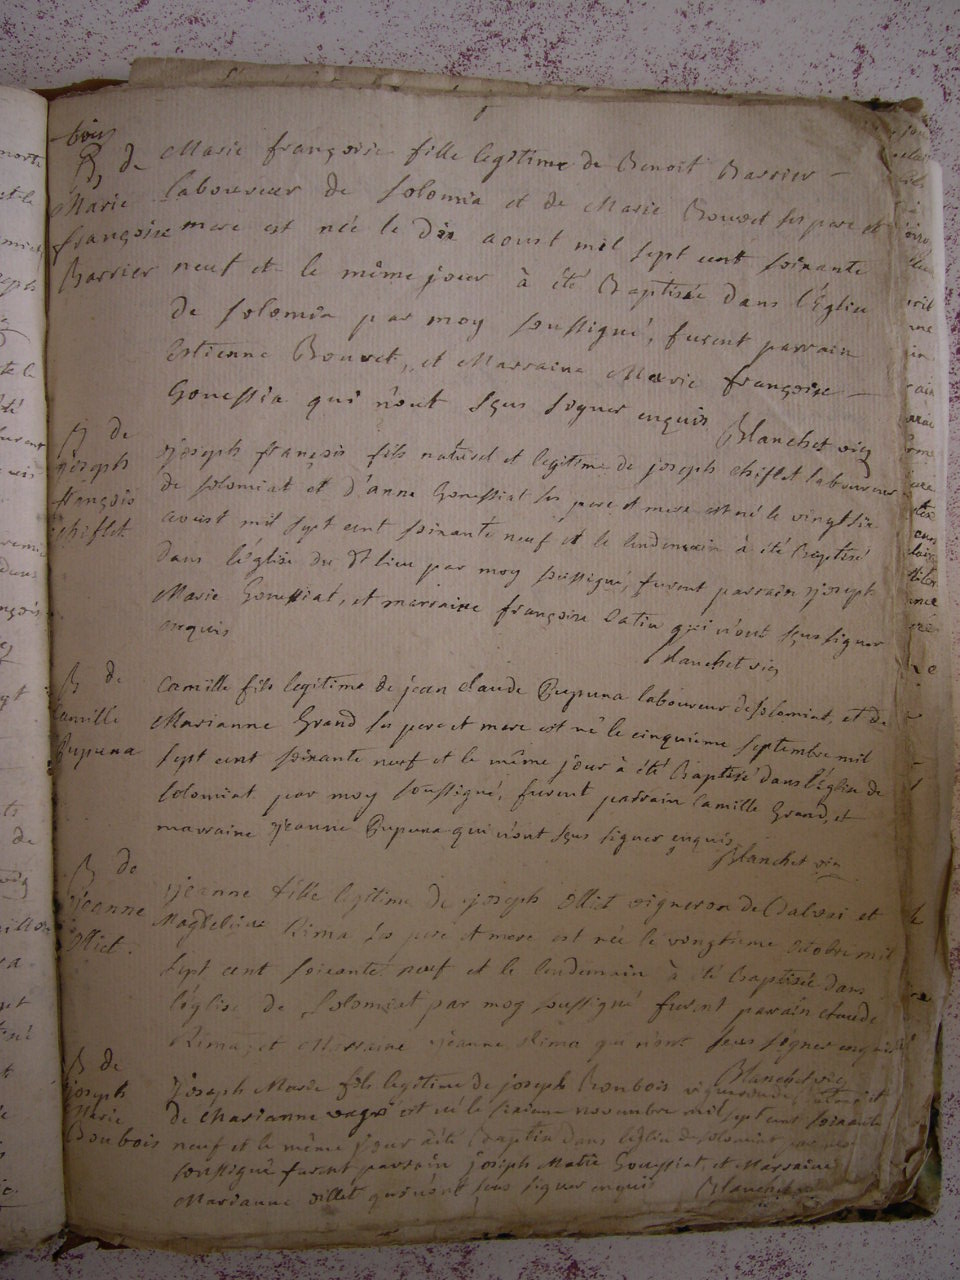 B de
Marie
françoise
Barrier
Marie françoise fille legitime de Benoit Barrier
laboureur de Solomia et de Marie Bouvet ses pere et
mere est née le Dix aoust mil sept cent soixante
neuf et le même jour à été Baptisée dans l'Église
de Solomia par moy soussigné, furent parrain
Estienne Bouvet, et Marraine Marie françoise
Gouessia qui n'ont sçus signer enquis Blanchet vic
B de
joseph
françois
chiflet
joseph françois fils naturel et legitime de joseph chiflet laboureur
de Solomiat et d'anne Gouessiat ses pere et mere est né le vingt six
aoust mil sept cent soixante neuf et le lendemain à été baptisé
dans l'église du dt lieu par moy soussigné, furent parrain joseph
Marie Gouessiat, et marraine françoise qui n'ont sçus signer
enquis
Blanchet vic
B de
Camille
Pupuna
Camille fils legitime de jean claude Pupuna laboureur de Solomiat, et de
Marianne Grand ses pere et mere est né le cinquieme septembre mil
sept cent soixante neuf et le même jour à été Baptisé dans l'église de
Solomiat par moy soussigné, furent parrain Camille Grand, et
marraine jeanne Pupuna qui n'ont sçus signer enquis
Blanchet vic
B de
jeanne
Olliet.
jeanne fille legitime de joseph Olliet vigneron de et
Magdeleine Rima ses pere et mere est née le vongtieme octobre mil
sept cent soixante neuf et le lendemain à été baptisée dans
l'église de Solomiat par moy soussigné furent parrain claude
Rima, et Marraine jeanne Rima qui n'ont sçus signer enquis
Blanchet vic
B de
joseph
Marie
Boubois
joseph Marie fils legitime de joseph Boubois vigneron et
de Marianne est né le sixieme novembre mil sept cent soixante
neuf et le même jour à été Baptisé dans l'église de Solomiat par moy
soussigné furent parrain joseph Marie Gouessiat, et Marraine
Marianne Olliet qui n'ont sçus signer enquis Blanchet